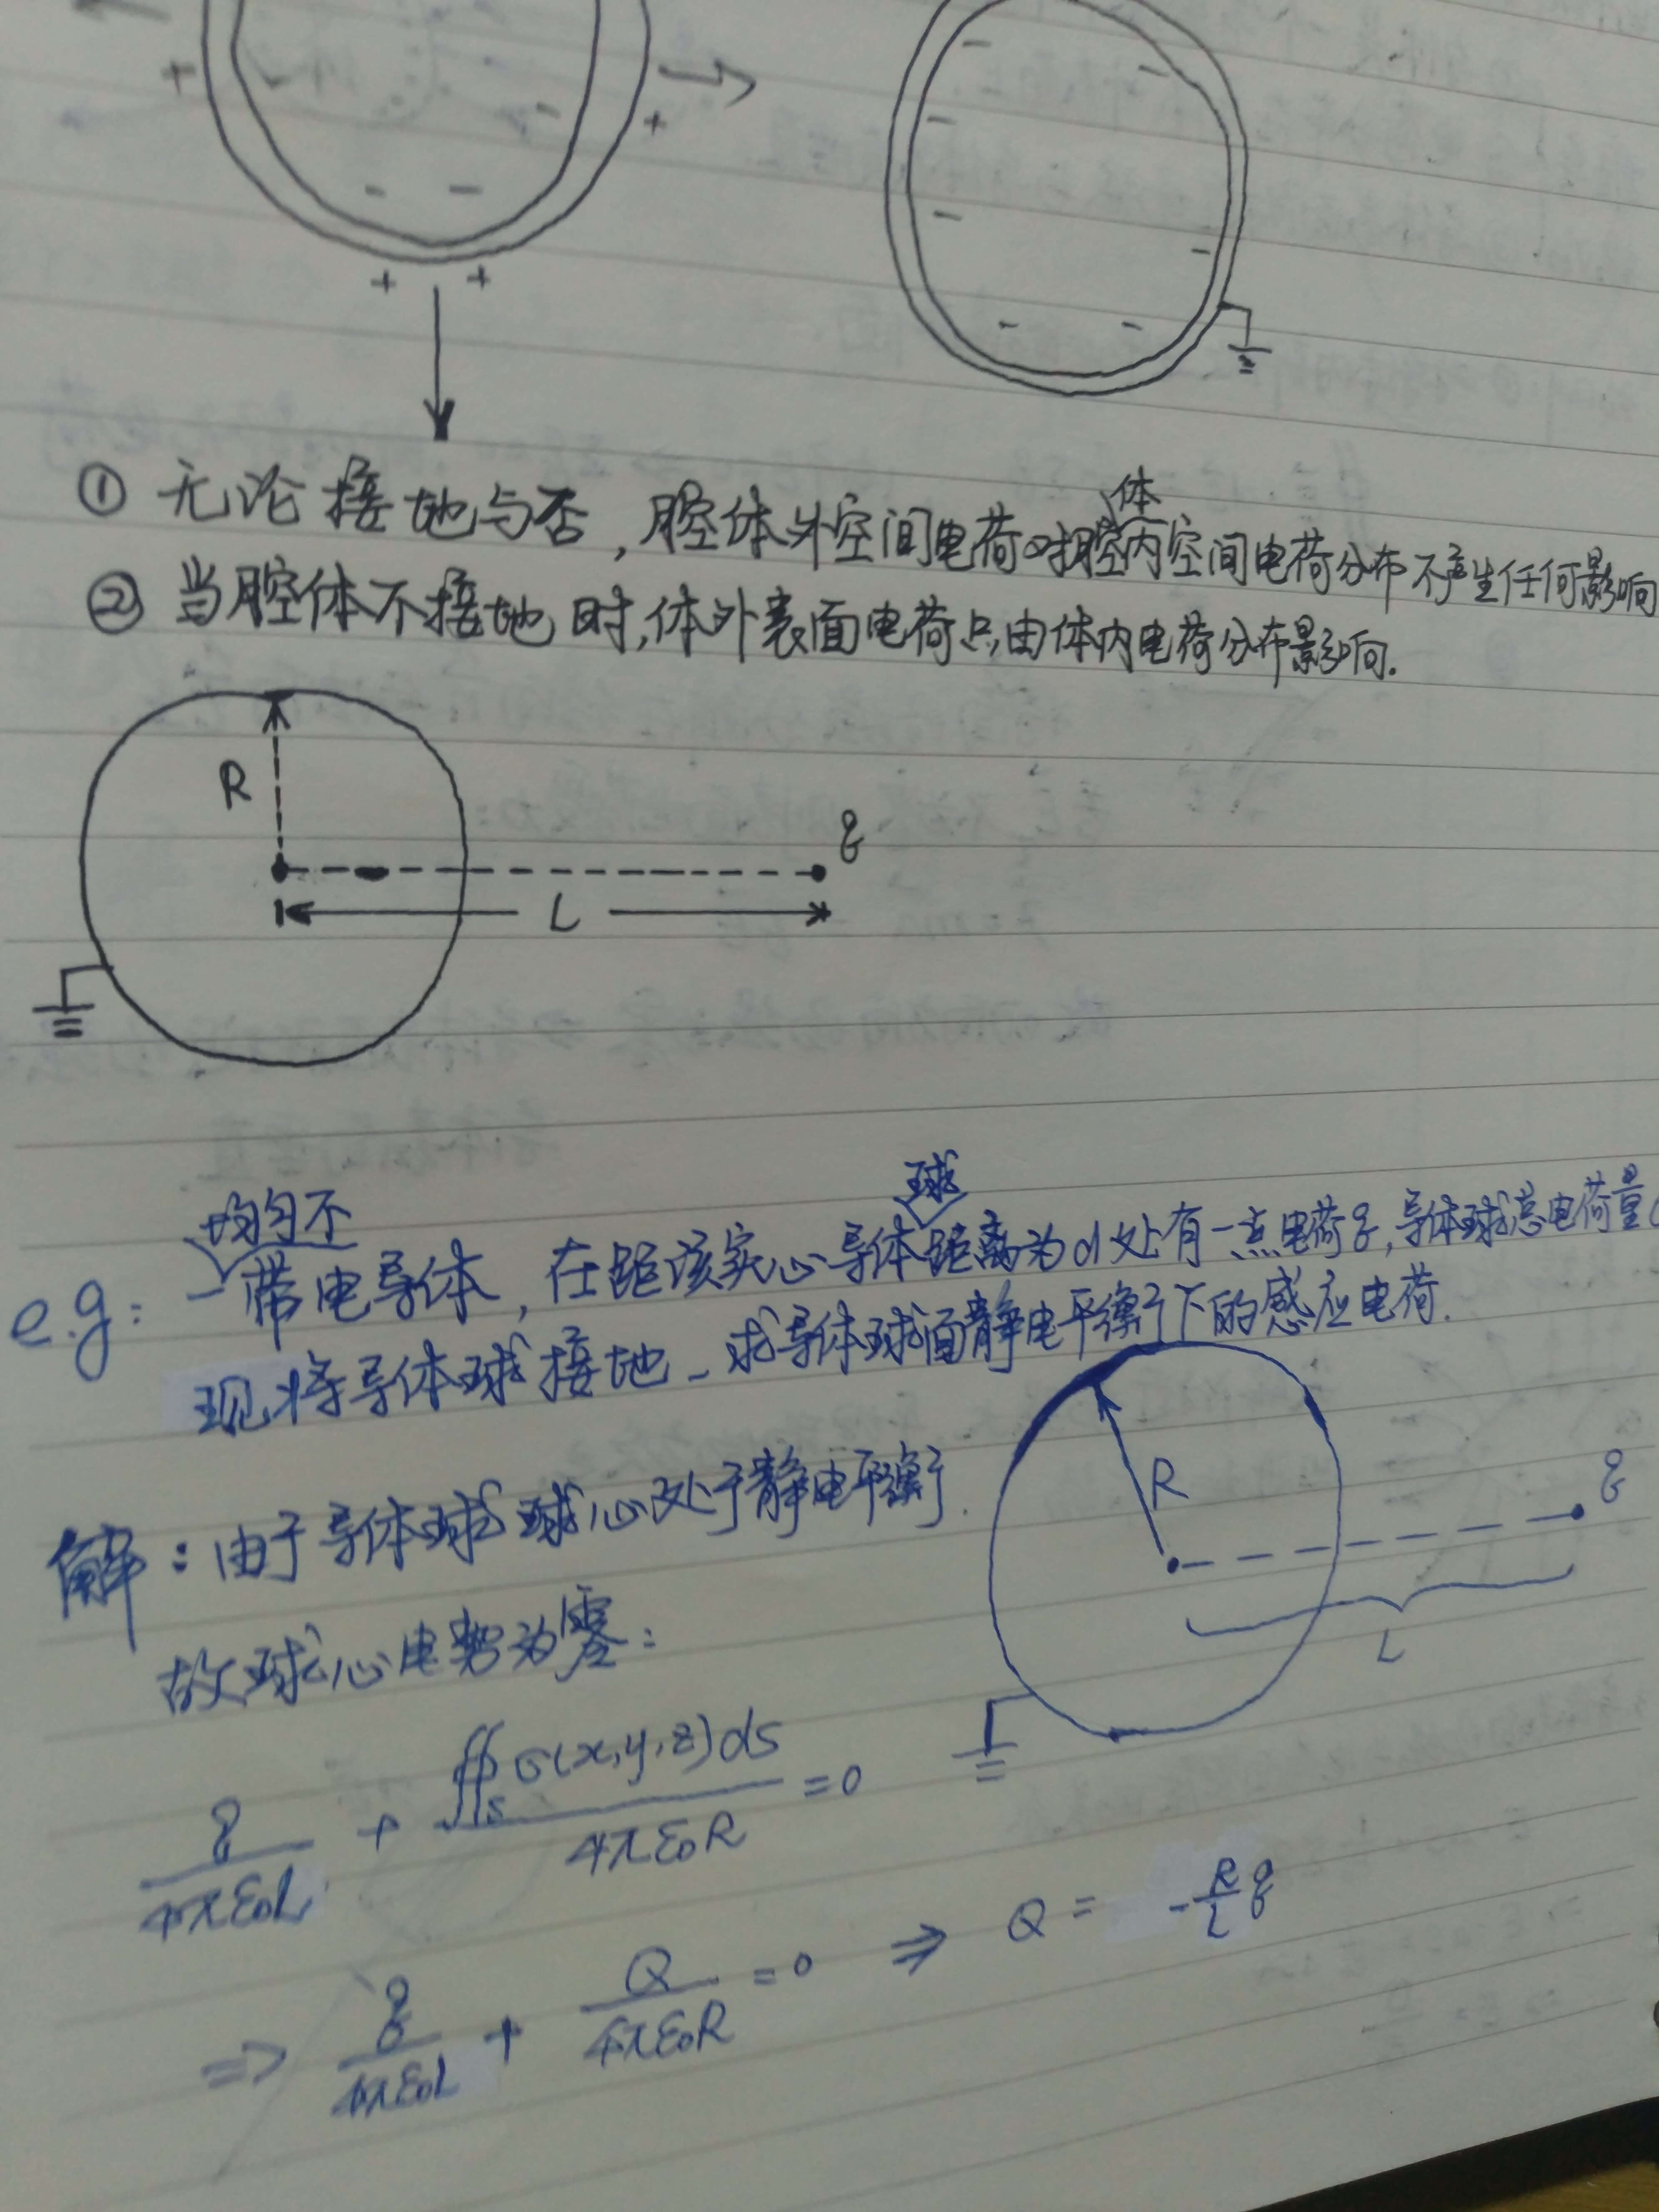 ① 无论接地与否，腔体外空间电荷对腔体内空间电荷分布不产生任何影响
② 当腔体不接地时，体外表面电荷只由体内电荷分布影响.
R
q
L
e.g: 一均匀不带电导体，在距该实心导体球距离为d处有一点电荷q，导体球总电荷量
现将导体球接地，求导体球面静电平衡下的感应电荷.
R
q
L
解：由于导体球球心处于静电平衡.
故球心电势为零：
q/4πε₀L + ∯s σ(x,y,z)ds/4πε₀R = 0
⇒ q/4πε₀L + Q/4πε₀R = 0 ⇒ Q = -R/L q